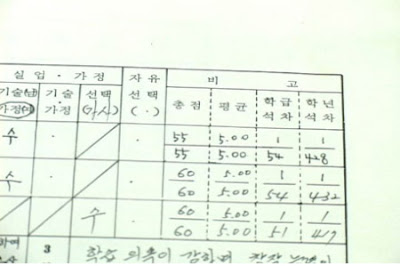 실업·가정 자유 비 고
기술(남) 기술 선택 선택 총점 평균 학급 학년
가정(여) ·가정 (가,사) (·) 석차 석차
수 · · 55/55 5.00/5.00 1/54 1/428
수 · · 60/60 5.00/5.00 1/54 1/432
수 · 60/60 5.00/5.00 1/51 1/417
하여 3 학습 의욕이 강하며